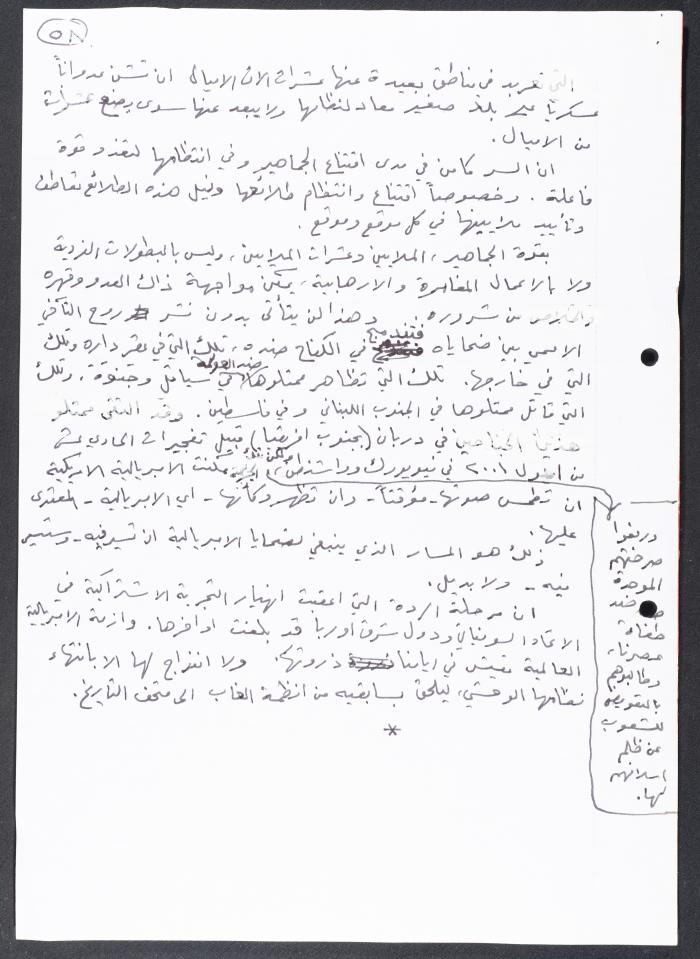 ٥٨
التي تعربد في مناطق بعيدة عنها عشرات الآف الاميال ان تشن عدواناً
عسكرياً على بلد صغير معاد لنظامها ولا يبعد عنها سوى بضع عشرات
من الاميال.
ان السر كامن في مدى اقتناع الجماهير وفي انتظامها لتغدو قوة
فاعلة. وخصوصاً اقتناع وانتظام طلائعها ونيل هذه الطلائع تعاطف
وتأييد ملايينها في كل موقع وموقع.
بقوة الجماهير، الملايين وعشرات الملايين، وليس بالبطولات الفردية
ولا بالاعمال المغامرة والارهابية، يمكن مواجهة ذاك العدو وقهره
والخلاص من شروره. وهذا لن يتأتى بدون نشر روح التآخي
الاممي بين ضحاياه فتندمج في الكفاح ضده، تلك التي في عقر داره وتلك
التي في خارجها. تلك التي تظاهر ممثلوها ضد العولمة في سياتل وجنوة، وتلك
التي قاتل ممثلوها في الجنوب اللبناني وفي فلسطين. وقد التقى ممثلو
هذين في دربان (بجنوب افريقيا) قبيل تفجيرات الحادي عشر
من ايلول ٢٠٠١ في نيويورك وواشنطن، تمكنت الامبريالية الامريكية
ان تطمس صوتها - مؤقتاً - وان تظهر وكأنها - اي الامبريالية - المعتدى
عليها.
ذلك هو المسار الذي ينبغي لضحايا الامبريالية ان تسير فيه - وستسير
فيه - ولا بديل.
ان مرحلة الردة التي اعقبت انهيار التجربة الاشتراكية في
الاتحاد السوفياتي ودول شرق اوربا قد بلغت اواخرها. وازمة الامبريالية
العالمية تعيش في ايامنا ذروتها. ولا انفراج لها الا بانتهاء
نظامها الوحشي، ليلحق بسابقيه من انظمة الغاب الى متحف التاريخ.
*
ورفعوا
صرختهم
الموحدة
ضد
طغاة
عصرنا،
وطالبوهم
بالتعويض
للشعوب
عن ظلم
اسلافهم
لها.